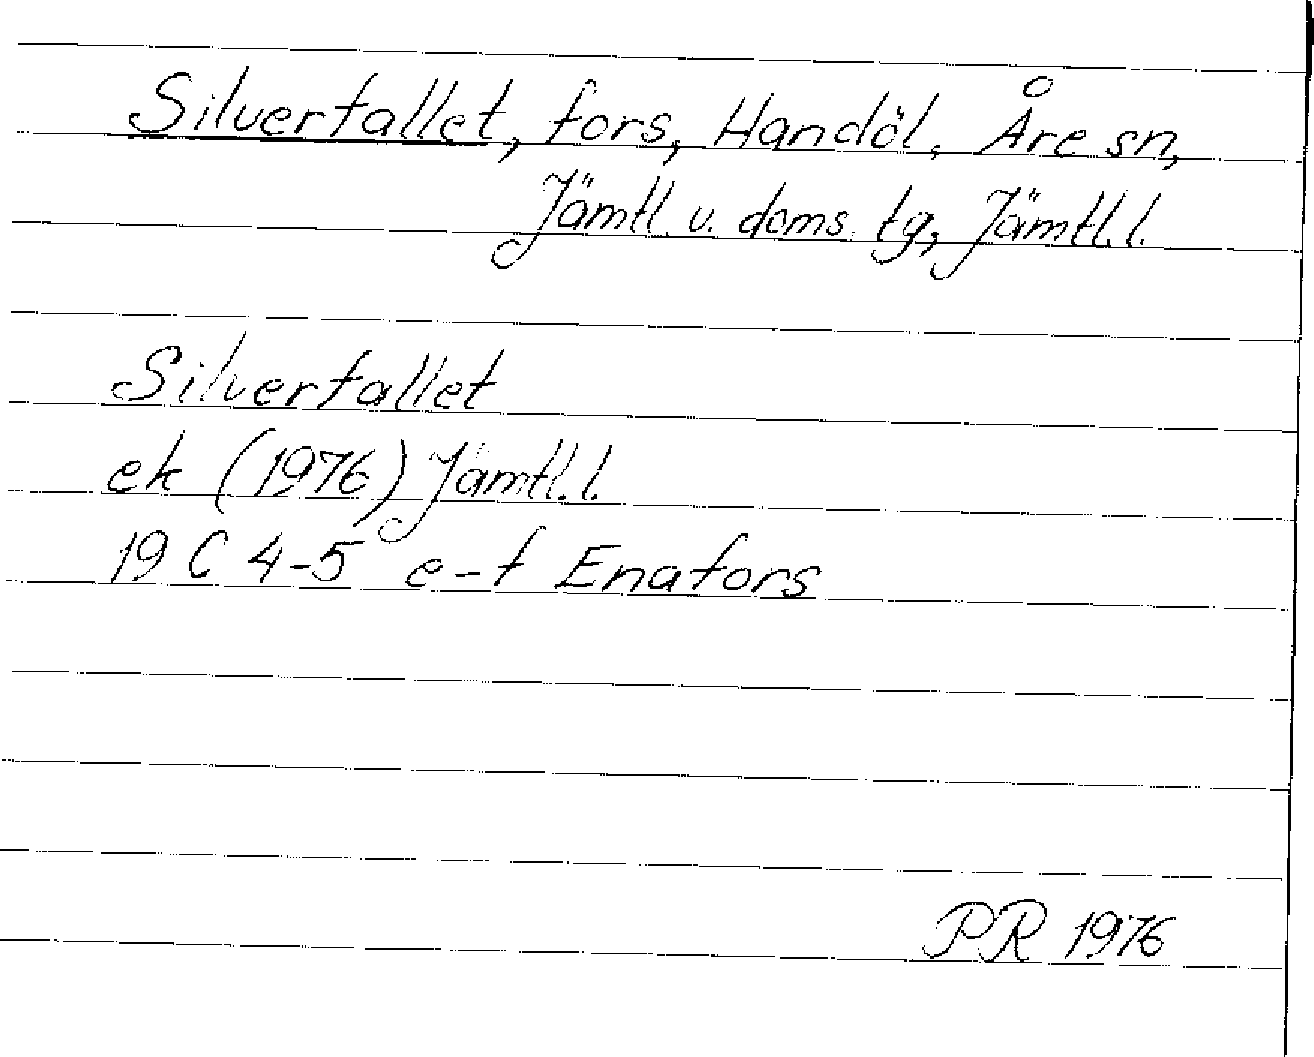 Silverfallet, fors, Handöl, Åre sn,
Jämtl. v. doms. tg, Jämtl.l.
Silverfallet
ek (1976) Jämtl.l.
19 C 4-5 e-f Enafors
PR 1976